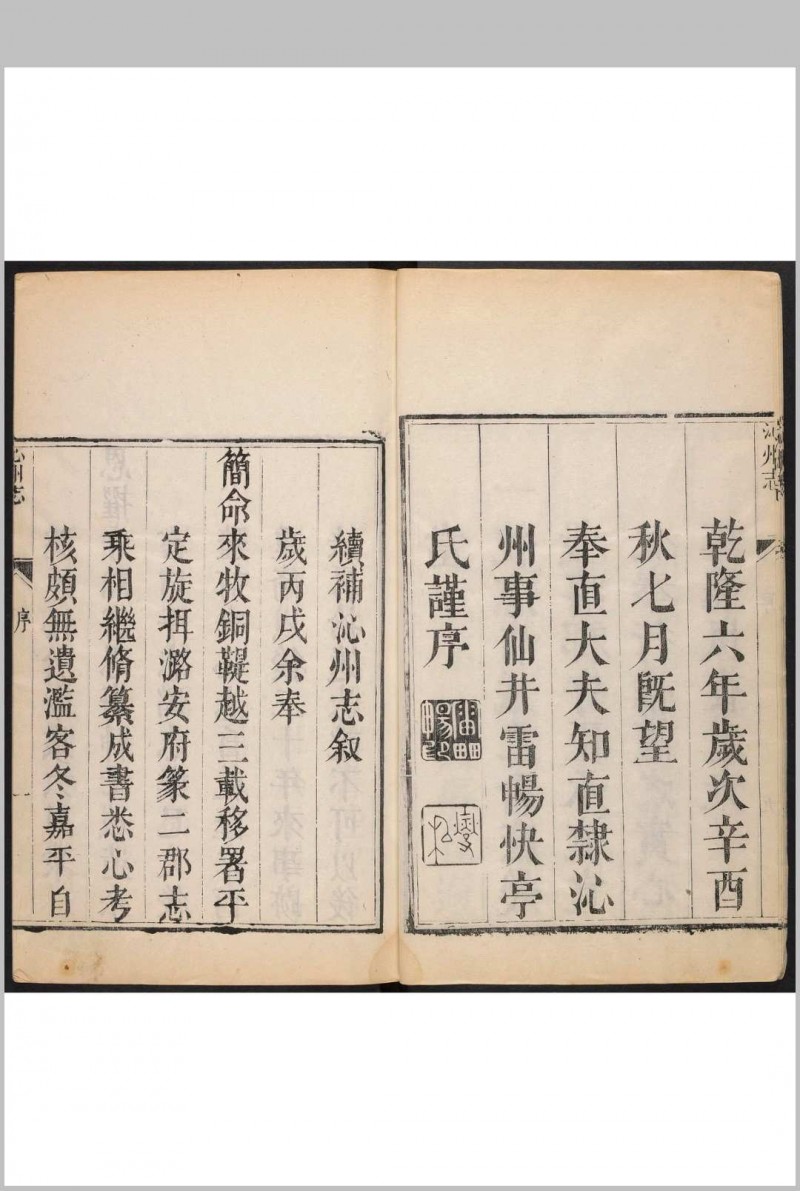 沁州志
乾隆六年歲次辛酉
秋七月旣望
奉直大夫知直隸沁
州事仙井雷暢快亭
氏謹序
續補沁州志叙
歲丙戌余奉
簡命來牧銅鞮越三載移署平
定旋揖潞安府篆二郡志
乘相繼脩纂成書悉心考
核頗無遺濫客冬嘉平自
州志
序
一